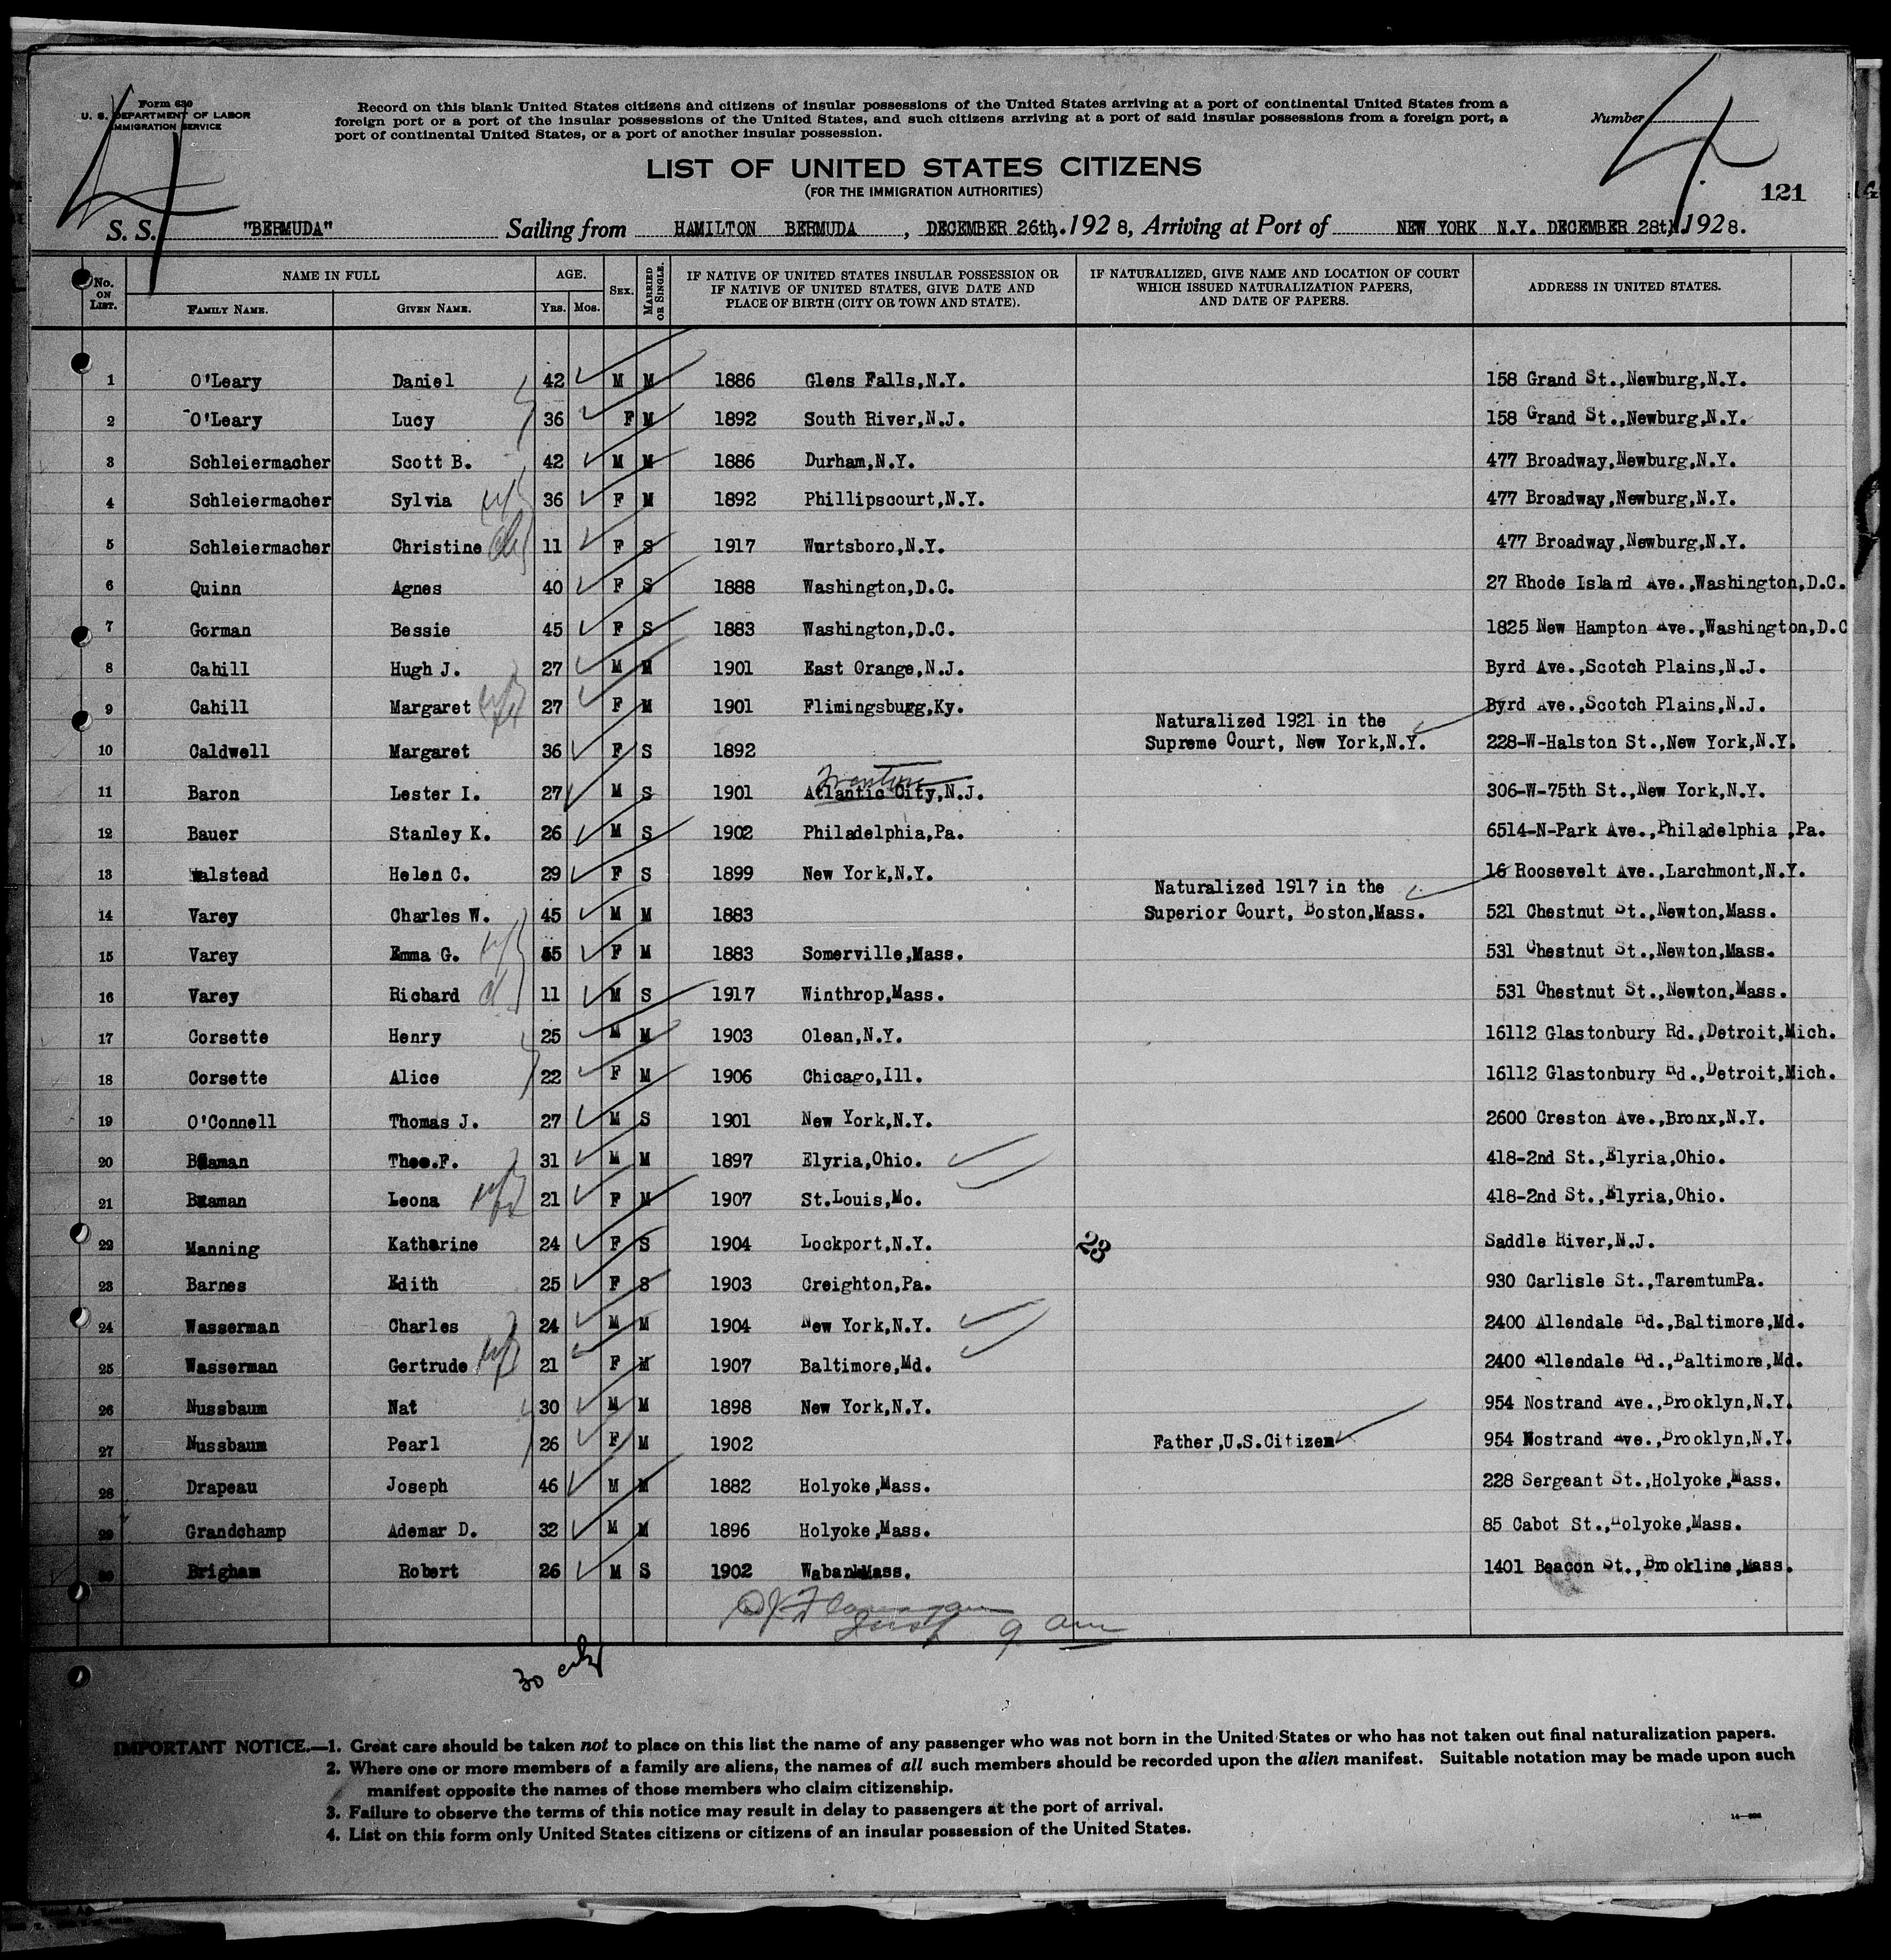 Form 630
U. S. DEPARTMENT OF LABOR
IMMIGRATION SERVICE
Record on this blank United States citizens and citizens of insular possessions of the United States arriving at a port of continental United States from a
foreign port or a port of the insular possessions of the United States, and such citizens arriving at a port of said insular possessions from a foreign port, a
port of continental United States, or a port of another insular possession.
Number
4
4
LIST OF UNITED STATES CITIZENS
(FOR THE IMMIGRATION AUTHORITIES)
121
S. S. "BERMUDA" Sailing from HAMILTON BERMUDA , DECEMBER 26th, 1928, Arriving at Port of NEW YORK N.Y. DECEMBER 28th, 1928.
No. ON LIST. NAME IN FULL FAMILY NAME. GIVEN NAME. AGE. YRS. MOS. SEX. MARRIED OR SINGLE. IF NATIVE OF UNITED STATES INSULAR POSSESSION OR IF NATIVE OF UNITED STATES, GIVE DATE AND PLACE OF BIRTH (CITY OR TOWN AND STATE). IF NATURALIZED, GIVE NAME AND LOCATION OF COURT WHICH ISSUED NATURALIZATION PAPERS, AND DATE OF PAPERS. ADDRESS IN UNITED STATES.
1 O'Leary Daniel 42 M M 1886 Glens Falls,N.Y. 158 Grand St.,Newburg,N.Y.
2 O'Leary Lucy 36 F M 1892 South River,N.J. 158 Grand St.,Newburg,N.Y.
3 Schleiermacher Scott B. 42 M M 1886 Durham,N.Y. 477 Broadway,Newburg,N.Y.
4 Schleiermacher Sylvia 36 F M 1892 Phillipscourt,N.Y. 477 Broadway,Newburg,N.Y.
5 Schleiermacher Christine 11 F S 1917 Wurtsboro,N.Y. 477 Broadway,Newburg,N.Y.
6 Quinn Agnes 40 F S 1888 Washington,D.C. 27 Rhode Island Ave.,Washington,D.C.
7 Gorman Bessie 45 F S 1883 Washington,D.C. 1825 New Hampton Ave.,Washington,D.C
8 Cahill Hugh J. 27 M M 1901 East Orange,N.J. Byrd Ave.,Scotch Plains,N.J.
9 Cahill Margaret 27 F M 1901 Flimingsbugg,Ky. Byrd Ave.,Scotch Plains,N.J.
Naturalized 1921 in the
10 Caldwell Margaret 36 F S 1892 Supreme Court, New York,N.Y. 228-W-Halston St.,New York,N.Y.
11 Baron Lester I. 27 M S 1901 Atlantic City,N.J. 306-W-75th St.,New York,N.Y.
12 Bauer Stanley K. 26 M S 1902 Philadelphia,Pa. 6514-N-Park Ave.,Philadelphia ,Pa.
13 Halstead Helen C. 29 F S 1899 New York,N.Y. 16 Roosevelt Ave.,Larchmont,N.Y.
Naturalized 1917 in the
14 Varey Charles W. 45 M M 1883 Superior Court, Boston,Mass. 521 Chestnut St.,Newton,Mass.
15 Varey Emma G. 55 F M 1883 Somerville,Mass. 531 Chestnut St.,Newton,Mass.
16 Varey Richard 11 M S 1917 Winthrop,Mass. 531 Chestnut St.,Newton,Mass.
17 Corsette Henry 25 M M 1903 Olean,N.Y. 16112 Glastonbury Rd.,Detroit,Mich.
18 Corsette Alice 22 F M 1906 Chicago,Ill. 16112 Glastonbury Rd.,Detroit,Mich.
19 O'Connell Thomas J. 27 M S 1901 New York,N.Y. 2600 Creston Ave.,Bronx,N.Y.
20 Theo.F. 31 M M 1897 Elyria,Ohio. 418-2nd St.,Elyria,Ohio.
21 Leona 21 F M 1907 St.Louis,Mo. 418-2nd St.,Elyria,Ohio.
22 Manning Katharine 24 F S 1904 Lockport,N.Y. 23 Saddle River,N.J.
23 Barnes Edith 25 F S 1903 Creighton,Pa. 930 Carlisle St.,TaremtumPa.
24 Wasserman Charles 24 M M 1904 New York,N.Y. 2400 Allendale Rd.,Baltimore,Md.
25 Wasserman Gertrude 21 F M 1907 Baltimore,Md. 2400 Allendale Rd.,Baltimore,Md.
26 Nussbaum Nat 30 M M 1898 New York,N.Y. 954 Nostrand Ave.,Brooklyn,N.Y.
27 Nussbaum Pearl 26 F M 1902 Father,U.S.Citizen 954 Nostrand Ave.,Brooklyn,N.Y.
28 Drapeau Joseph 46 M M 1882 Holyoke,Mass. 228 Sergeant St.,Holyoke,Mass.
29 Grandchamp Ademar D. 32 M M 1896 Holyoke,Mass. 85 Cabot St.,Holyoke,Mass.
30 Brigham Robert 26 M S 1902 Waban Mass. 1401 Beacon St.,Brookline,Mass.
9 am
30
IMPORTANT NOTICE.—1. Great care should be taken not to place on this list the name of any passenger who was not born in the United States or who has not taken out final naturalization papers.
2. Where one or more members of a family are aliens, the names of all such members should be recorded upon the alien manifest. Suitable notation may be made upon such
manifest opposite the names of those members who claim citizenship.
3. Failure to observe the terms of this notice may result in delay to passengers at the port of arrival.
4. List on this form only United States citizens or citizens of an insular possession of the United States.